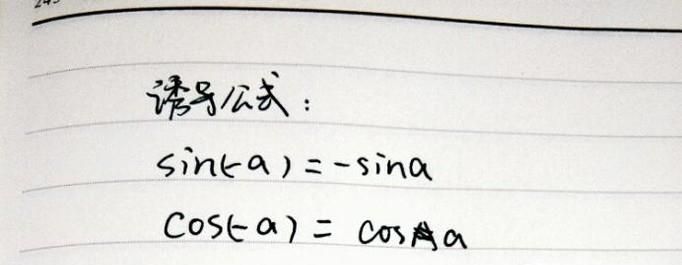 诱导公式：
sin(-a)=-sina
cos(-a)= cosa